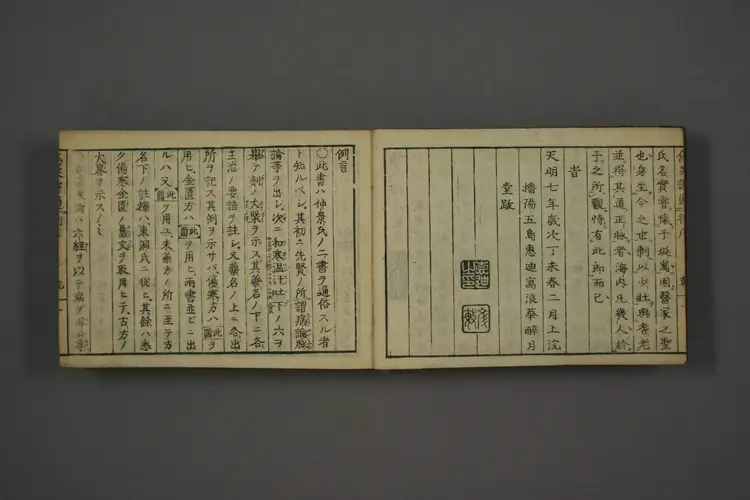 氏名實齋條子
萬國醫家之聖
也身生今之世
以少壯與耆老
並得其道正脉者海内凡幾人於
子之所觀恃有此節而已
旹
天明七年歳次丁未春二月上浣
播陽五島惠迪寓浪華醉月
堂跋
例言
○此書ハ仲景氏ノ二書ヲ通俗スル者
ト知ルベシ其初ニ先賢ノ所謂病論脉
論等ヲ出シ次ニ和寒温汗吐下ノ六ヲ
舉テ劑ノ大槩ヲ示ス其藥名ノ下ニ各
主治ノ要語ヲ註シ又藥名ノ上ニ各出
所ヲ記ス其例ヲ示サバ傷寒方ハ此圖ヲ
用ヒ金匱方ハ此圖ヲ用ヒ兩書並ヒ出
ルハ又此圖ヲ用ユ末藥方ノ所ニ至テ方
名下ノ註擇ハ東洞氏ニ從ヒ其餘ハ悉
ク傷寒金匱ノ舊文ヲ取用ヒテ古方ノ
大畧ヲ示スノミ
六經ヲ以テ病ヲ